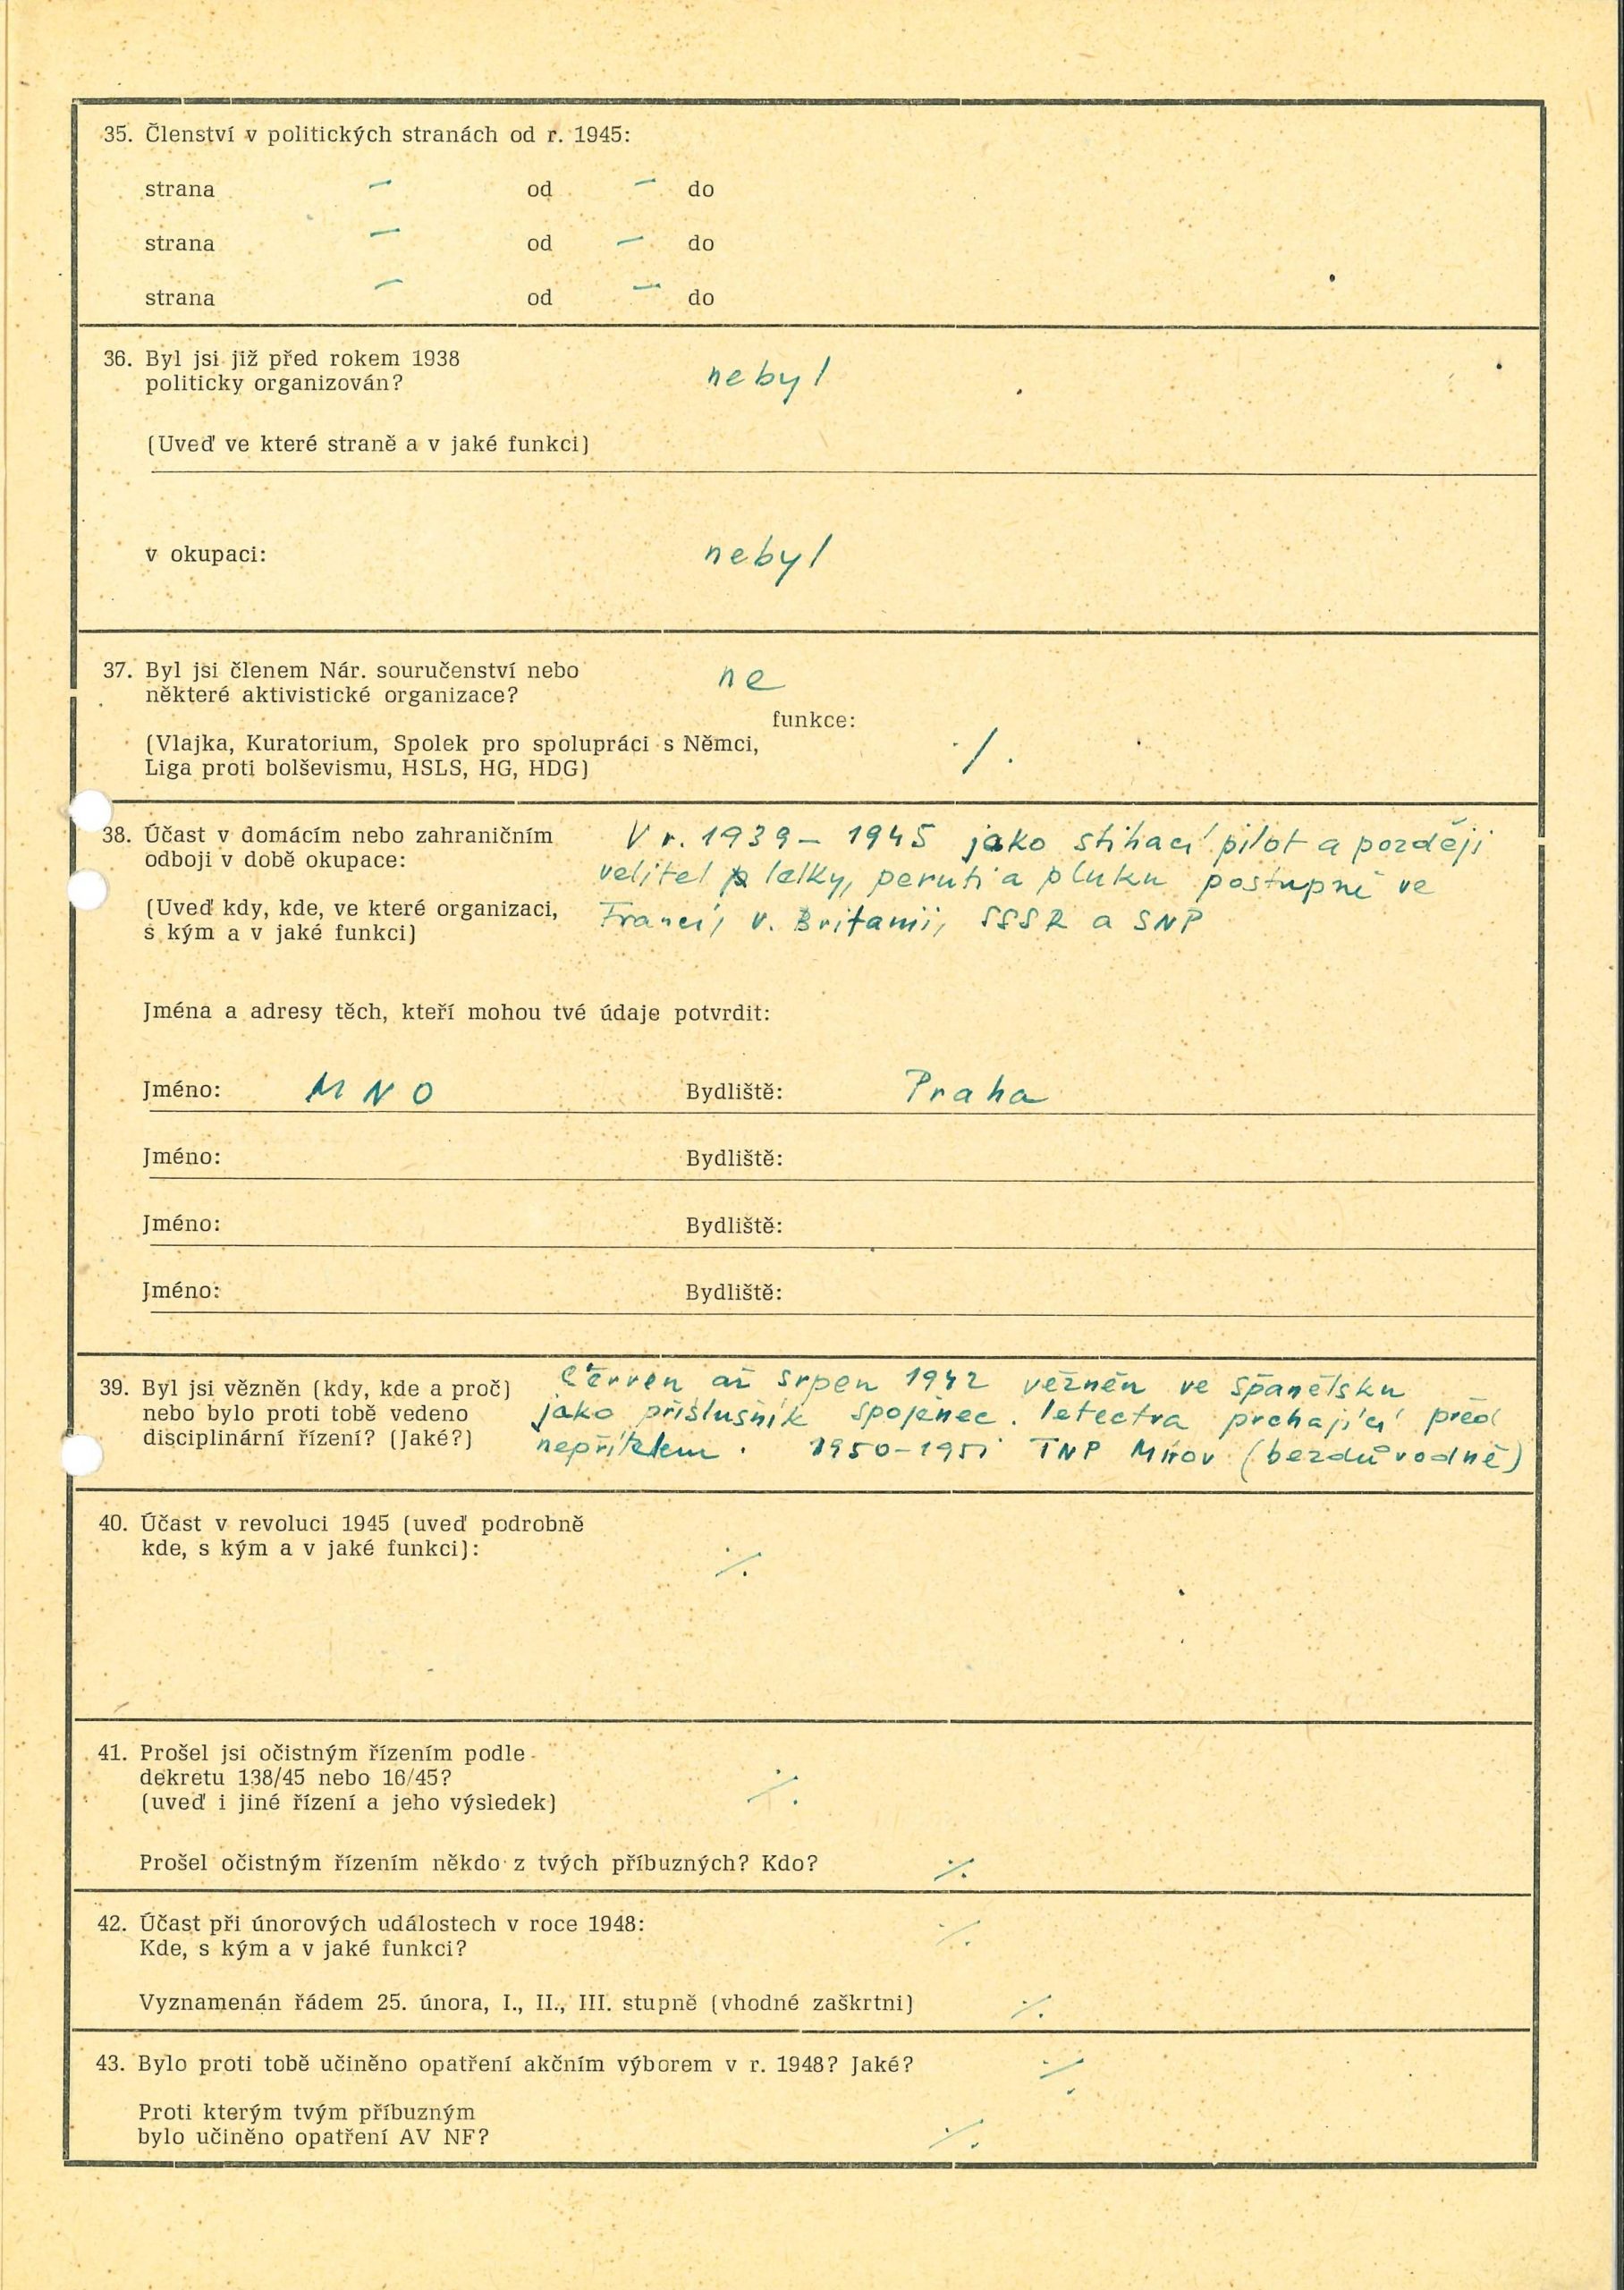 35. Členství v politických stranách od r. 1945:
strana – od – do
strana – od – do
strana – od – do
36. Byl jsi již před rokem 1938
politicky organizován? nebyl
(Uveď ve které straně a v jaké funkci)
v okupaci: nebyl
37. Byl jsi členem Nár. souručenství nebo ne
některé aktivistické organizace?
funkce:
(Vlajka, Kuratorium, Spolek pro spolupráci s Němci, ·/.
Liga proti bolševismu, HSLS, HG, HDG)
38. Účast v domácím nebo zahraničním V r. 1939 – 1945 jako stíhací pilot a později
odboji v době okupace: velitel letky, peruti a pluku postupně ve
(Uveď kdy, kde, ve které organizaci, Francii, V. Britanii, SSSR a SNP
s kým a v jaké funkci)
Jména a adresy těch, kteří mohou tvé údaje potvrdit:
Jméno: MNO Bydliště: Praha
Jméno: Bydliště:
Jméno: Bydliště:
Jméno: Bydliště:
39. Byl jsi vězněn (kdy, kde a proč) Červen až srpen 1942 vězněn ve Španělsku
nebo bylo proti tobě vedeno jako příslušník spojenec. letectva prchající před
disciplinární řízení? (Jaké?) nepřítelem. 1950–1951 TNP Mírov (bezdůvodně)
40. Účast v revoluci 1945 (uveď podrobně
kde, s kým a v jaké funkci): ·/.
41. Prošel jsi očistným řízením podle
dekretu 138/45 nebo 16/45? ·/.
(uveď i jiné řízení a jeho výsledek)
Prošel očistným řízením někdo z tvých příbuzných? Kdo? ·/.
42. Účast při únorových událostech v roce 1948: ·/.
Kde, s kým a v jaké funkci?
Vyznamenán řádem 25. února, I., II., III. stupně (vhodné zaškrtni) ·/.
43. Bylo proti tobě učiněno opatření akčním výborem v r. 1948? Jaké? ·/.
Proti kterým tvým příbuzným
bylo učiněno opatření AV NF? ·/.